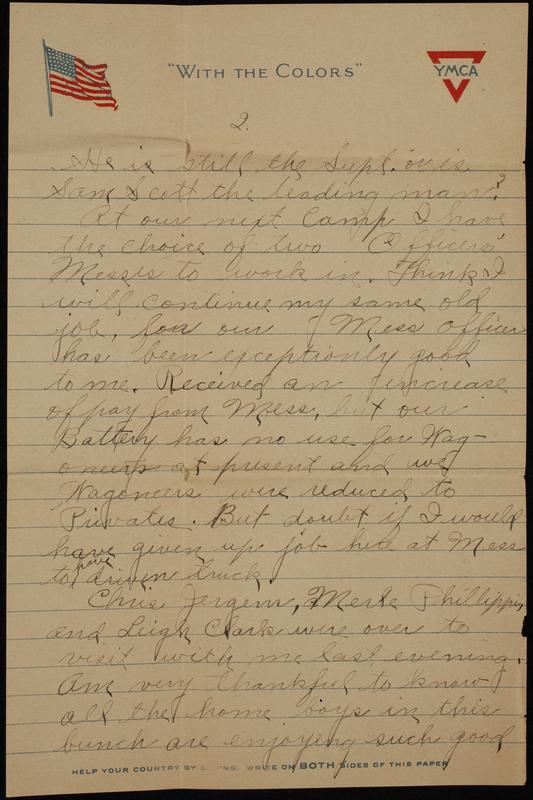 "WITH THE COLORS"
YMCA
2.
He is still the Supt. or is
Sam Scott the leading man?
At our next Camp I have
the choice of two Officers'
Messes to work in. Think I
will continue my same old
job, for our Mess officer
has been exceptionly good
to me. Received an increase
of pay from Mess, but our
Battery has no use for Wag-
oneers at present and we
Wagoneers were reduced to
Privates. But doubt if I would
have given up job here at Mess
to have driven truck.
Chris Jergens, Merle Phillippi,
and Leigh Clark were over to
visit with me last evening.
Am very thankful to know
all the home boys in this
bunch are enjoying such good
HELP YOUR COUNTRY BY WRITE ON BOTH SIDES OF THIS PAPER